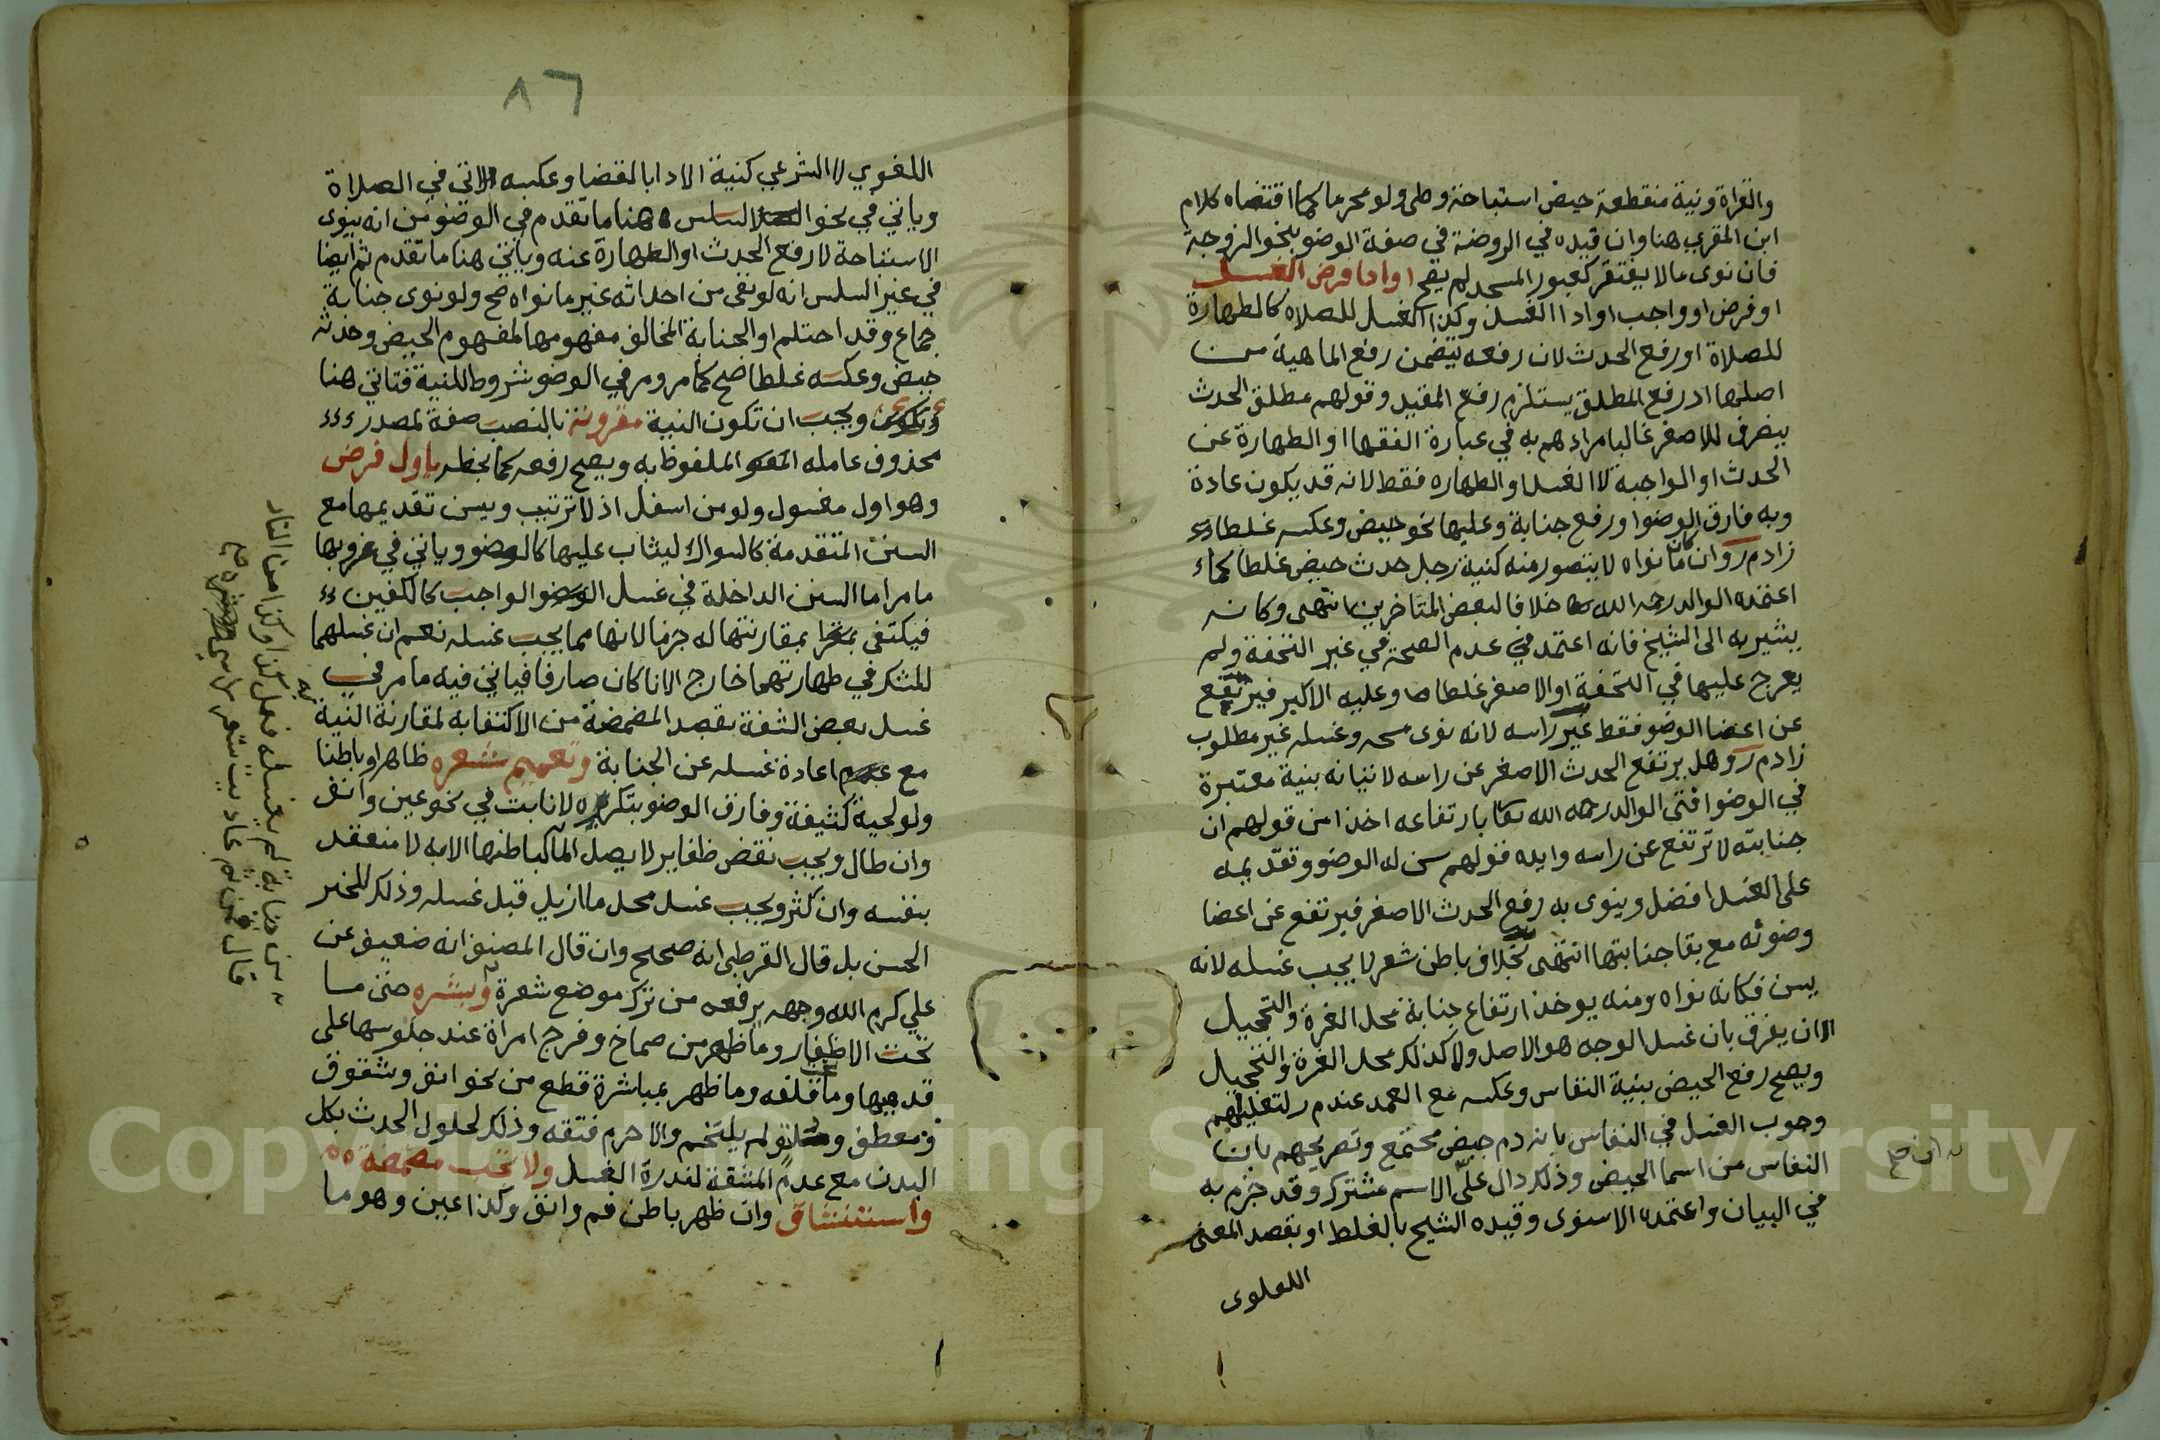 والقراة ونية منقطعة حيض استباحة وطى ولو محرما كما اقتضاه كلام
ابن المقري هنا وان قيده في الروضة في صفة الوضو بنحو الزوجة
فان نوى مالا يفتقر كعبور المسجد لم يصح او ادا فرض الغسل
او فرض او واجب او ادا الغسل وكذا الغسل للصلاه كالطهارة
للصلاة او رفع الحدث لان رفعه يتضمن رفع الماهية من
اصلها اذ رفع المطلق يستلزم رفع المقيد وقولهم مطلق الحدث
ينصرف للاصغر غالبا مرادهم به في عبارة الفقها او الطهارة عن
الحدث او الواجبة لا الغسل او الطهاره فقط لانه قد يكون عادة
وبه فارق الوضوا ورفع جنابة وعليها نحو حيض وعكسه غلطا
زاد م ر وان كان ما نواه لا يتصور منه كنية رجل حدث حيض غلطا كما
اعتمده الوالد رحمه الله خلافا لبعض المتاخرين انتهى وكانه
يشير به الى الشيخ فانه اعتمد في عدم الصحة في غير التحفة ولم
يعرج عليها في التحفة او الاصغر غلطا وعليه الاكبر فيرتفع
عن اعضا الوضو فقط غير راسه لانه نوى مسحه وغسله غير مطلوب
زاد م ر وهل يرتفع الحدث الاصغر عن راسه لاتيانه بنية معتبرة
في الوضو افتى الوالد رحمه الله تعا بارتفاعه اخذا من قولهم ان
جنابته لا ترتفع عن راسه وايده قولهم سن له الوضو وتقديمه
على الغسل افضل وينوى به رفع الحدث الاصغر فيرتفع عن اعضا
وضوئه مع بقا جنابتها انتهى بخلاف باطن شعر لا يجب غسله لانه
يسن فكانه نواه ومنه يوخذ ارتفاع جنابة محل الغرة والتحجيل
الا ان يفرق بان غسل الوجه هو الاصل ولا كذلك محل الغرة والتحجيل
ويصح رفع الحيض بنية النفاس وعكسه مع العمد عند م ر لتعليلهم
وجوب الغسل في النفاس بانه دم حيض مجتمع وتصريحهم بان
النفاس من اسما الحيض وذلك دال على الاسم مشترك وقد جزم به
في البيان واعتمده الاسنوى وقيده الشيح بالغلط او بقصد المعنى
اللغوى
٨٦
اللغوي لا الشرعي كنية الادا بالقضا وعكسه الاتي في الصلاة
وياتي في نحو السلس هنا ما تقدم في الوضو من انه ينوى
الاستباحة لا رفع الحدث او الطهارة عنه وياتي هنا ما تقدم ثم ايضا
في غير السلس انه لو بقى من احداثه غير ما نواه صح ولو نوى جنابة
جماع وقد احتلم او الجنابة المخالف مفهومها لمفهوم الحيض وحدثه
حيض وعكسه غلطا صح كما مر ومر في الوضو شروط للنية فتاتي هنا
ويجب ان تكون النية مقرونة بالنصب صفة لمصدر
محذوف عامله الملفوظ به ويصح رفعه كما بخطه باول فرض
وهو اول مغسول ولو من اسفل اذ لا ترتيب ويسن تقديمها مع
السنن المتقدمة كالسواك ليثاب عليها كالوضو وياتي في عزوبها
ما مر اما السنن الداخلة في غسل الواجب كالكفين
فيكتفى بمقارنتها له جزما لانها مما يجب غسله نعم ان غسلهما
للشك في طهارتهما خارج الانا كان صارفا فياتي فيه ما مر في
غسل بعض الشفة بقصد المضمضة من الاكتفا به لمقارنة النية
مع عدم اعادة غسله عن الجنابة وتعميم شعره ظاهرا وباطنا
ولو لحية كثيفة وفارق الوضو بتكرره لا نابت في نحو عين وانف
وان طال ويجب نقض ظفاير لا يصل الما لباطنها الا به لا منعقد
بنفسه وان كثر ويجب غسل محل ما ازيل قبل غسله وذلك للخبر
الحسن بل قال القرطبى انه صحيح وان قال المصنف انه ضعيف عن
علي كرم الله وجهه يرفعه من ترك موضع شعرة وبشره حتى ما
تحت الاظفار وما ظهر من صماخ وفرج امراة عند جلوسها على
قدميها وما تحت قلفه وما ظهر بمباشرة قطع من نحو انف وشقوق
لم يلتحم والا حرم فتقه وذلك لحلول الحدث بكل
البدن مع عدم المشقة لندرة الغسل ولا تجب مضمضة
واستنشاق وان ظهر باطن فم وانف وكذا عين وهو ما
من جنابة لم يغسله فعل كذا وكذا من النار
قال فمن ثم عاديت شعر راسي